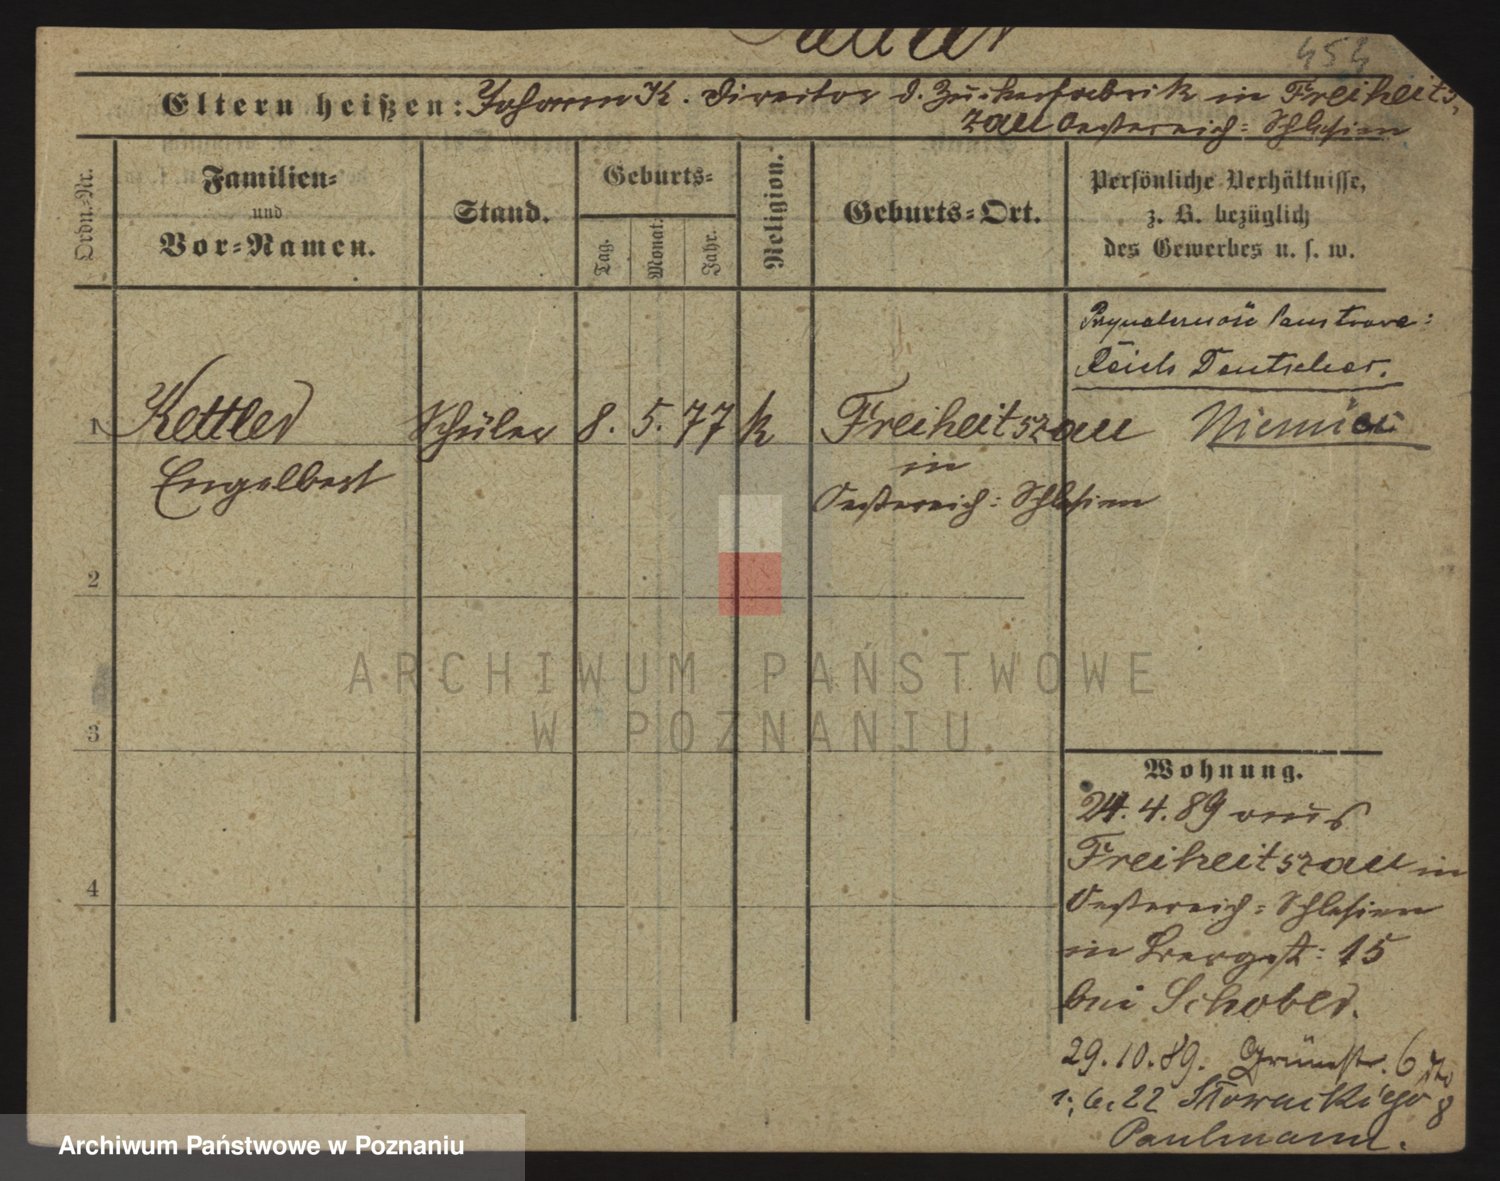 454
Eltern heißen: Johann K. Director d. Zuckerfabrik in Freiheits-
zau Oesterreich: Schlesien
Ordn.-Nr.
Familien-
und
Vor-Namen.
Stand.
Geburts-
Tag.
Monat.
Jahr.
Religion.
Geburts-Ort.
Persönliche Verhältnisse,
z. B. bezüglich
des Gewerbes u. s. w.
Reich Deutscher.
1 Kettler Schüler 8. 5. 77 k Freiheitszau Niemiec
Engelbert in
Oesterreich: Schlesien
2
3
4
ARCHIWUM PAŃSTWOWE
W POZNANIU
Wohnung.
24. 4. 89 aus
Freiheitszau in
Oesterreich: Schlesien
in Bergst: 15
bei Schober.
29. 10. 89. Grünestr. 6
1. 6. 22 Słowackiego 8
Paulmann.
Archiwum Państwowe w Poznaniu